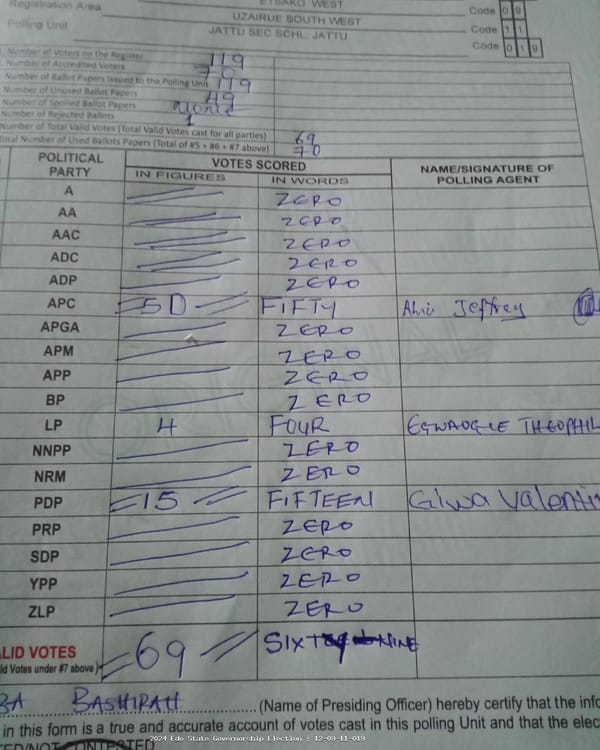 Registration Area ETSAKO WEST Code 0 9
UZAIRUE SOUTH WEST
Polling Unit JATTU SEC SCHL. JATTU Code 1 1
Code 0 1 9
Number of Voters on the Register 119
Number of Accredited Voters 70
Number of Ballot Papers Issued to the Polling Unit 119
Number of Unused Ballot Papers 49
Number of Spoiled Ballot Papers None
Number of Rejected Ballots 1
Number of Total Valid Votes (Total Valid Votes cast for all parties) 69
Total Number of Used Ballots Papers (Total of #5 + #6 + #7 above) 70
POLITICAL PARTY VOTES SCORED NAME/SIGNATURE OF POLLING AGENT
IN FIGURES IN WORDS
A ZERO
AA ZERO
AAC ZERO
ADC ZERO
ADP ZERO
APC 50 FIFTY Jeffrey
APGA ZERO
APM ZERO
APP ZERO
BP ZERO
LP 4 FOUR THEOPHIL
NNPP ZERO
NRM ZERO
PDP 15 FIFTEEN Giwa Valentin
PRP ZERO
SDP ZERO
YPP ZERO
ZLP ZERO
LID VOTES 69 SIXTY NINE
id Votes under #7 above)
BA BASHIRAH (Name of Presiding Officer) hereby certify that the info
in this form is a true and accurate account of votes cast in this polling Unit and that the elec
2024 Edo State Governorship Election : 12-09-11-019
ED/NOT CONTESTED